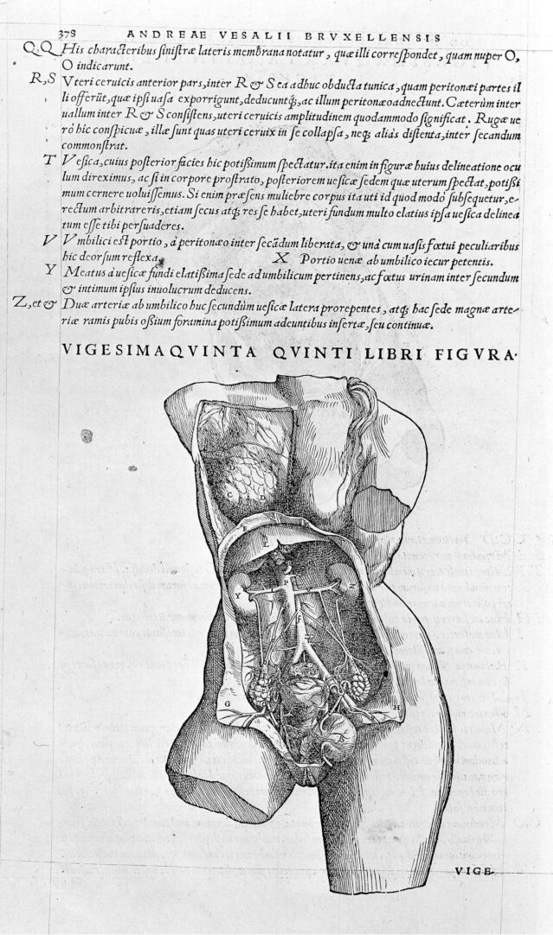 378 ANDREAE VESALII BRVXELLENSIS
Q,Q His characteribus sinistræ lateris membrana notatur, quæ illi correspondet, quam nuper O,
O indicarunt.
R,S Vteri ceruicis anterior pars, inter R & S ea adhuc obducta tunica, quam peritonæi partes il
li offerūt, quæ ipsi uasa exporrigunt, deducuntq́;, ac illum peritonæo adnectunt. Cæterùm inter
uallum inter R & S consistens, uteri ceruicis amplitudinem quodammodo significat. Rugæ ue
rò hic conspicuæ, illæ sunt quas uteri ceruix in se collapsa, neq; aliàs distenta, inter secandum
commonstrat.
T Vesica, cuius posterior facies hic potissimum spectatur. ita enim in figuræ huius delineatione ocu
lum direximus, ac si in corpore prostrato, posteriorem uesicæ sedem quæ uterum spectat, potissi
mum cernere uoluissemus. Si enim præsens muliebre corpus ita uti id quod modò subsequetur, e-
rectum arbitrareris, etiam secus atq; res se habet, uteri fundum multo elatius ipsa uesica delinea
tum esse tibi persuaderes.
V Vmbilici est portio, à peritonæo inter secādum liberata, & unà cum uasis fœtui peculiaribus
hic deorsum reflexa, X Portio uenæ ab umbilico iecur petentis.
Y Meatus à uesicæ fundi elatissima sede ad umbilicum pertinens, ac fœtus urinam inter secundum
& intimum ipsius inuolucrum deducens.
Z, et & Duæ arteriæ ab umbilico huc secundùm uesicæ latera prorepentes, atq; hac sede magnæ arte-
riæ ramis pubis ossium foramina potissimum adeuntibus insertæ, seu continuæ.
VIGESIMAQVINTA QVINTI LIBRI FIGVRA.
P
Y
G
H
VIGE-